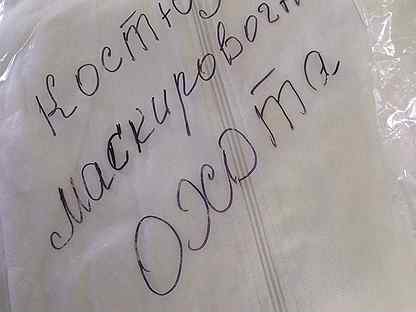 Костю
маскировочн
охота